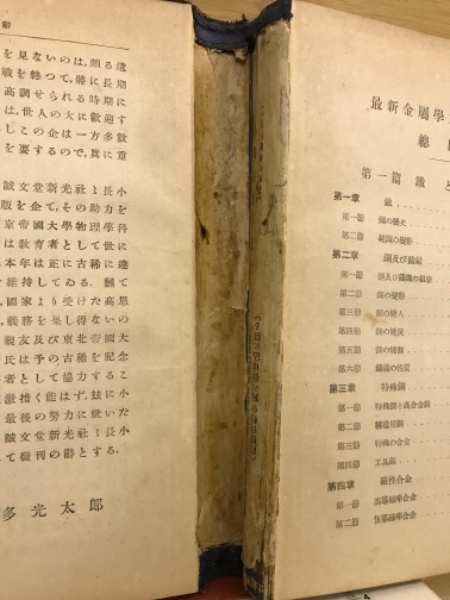 を見ないのは,頗る遺
戰を終つて,將に長期
高調せられる時期に
は,世人の大に歡迎す
しこの企は一方多數
を要するので,眞に重
誠文堂新光社々長小
版を企て,その助力を
京帝國大學理學科
は敎育者として世に
本年は正に古稀に達
維持してゐる.飜て
,國家より受けた高恩
,義務を果し得ないの
親友及び東北帝國大
氏は予の古稀を記念
者として協力するこ
激措く能はず,茲に
最後の努力に敢いた
誠文堂新光社々長小
て發刊の辭とする.
多光太郎
最新金屬學
總
第一篇 鐵と
第一章 鐵
第一節 鐵の歷史
第二節 純鐵の變態
第二章 鋼及び鑄鐵
第一節 鋼及び鑄鐵の組織
第二節 鋼の變態
第三節 鋼の燒入
第四節 鋼の燒戾
第五節 鋼の燒鈍
第六節 鑄鐵の性質
第三章 特殊鋼
第一節 特殊鋼と高合金鋼
第二節 構造用鋼
第三節 特殊の合金
第四節 工具鋼
第四章 磁性合金
第一節 高導磁率合金
第二節 恆導磁率合金